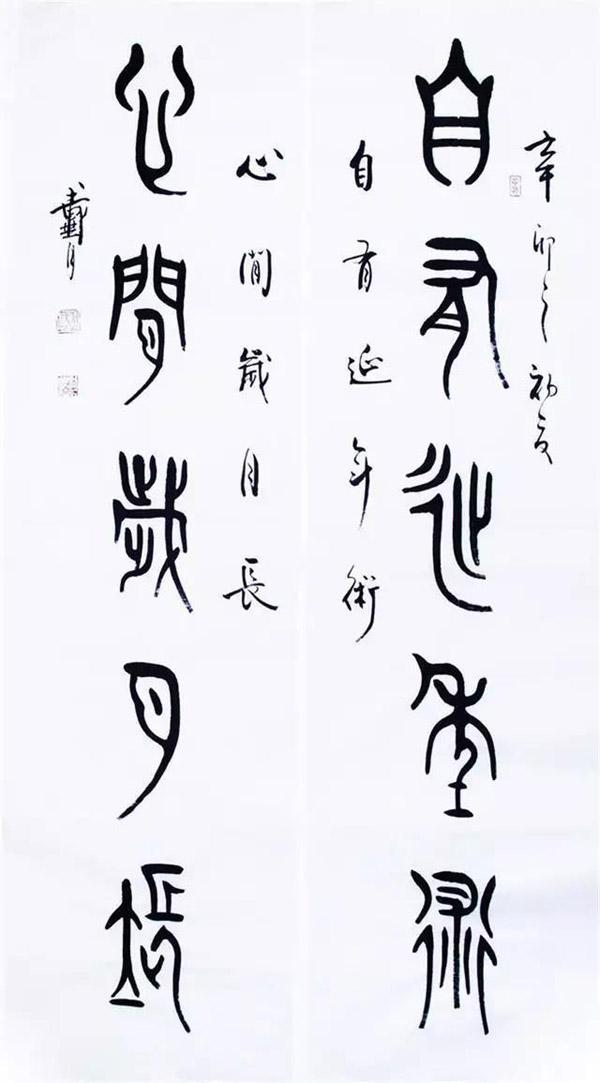 辛卯之初夏
自有延年術
自有延年術
心閒歲月長
心閒歲月長
戴月